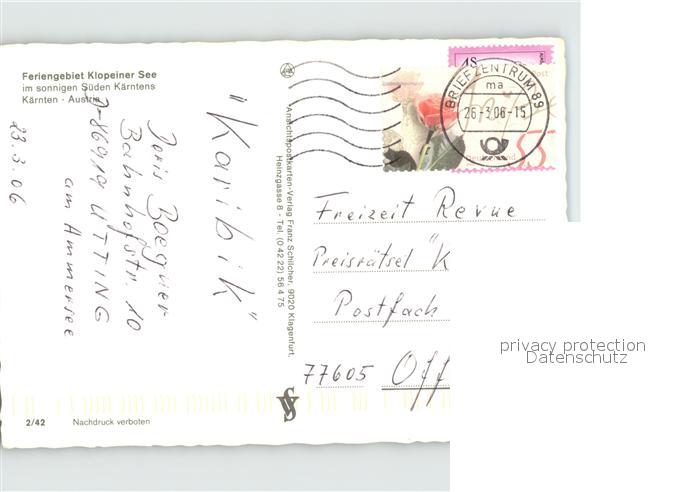 Feriengebiet Klopeiner See
im sonnigen Süden Kärntens
Kärnten - Austria
23.3.06
"Karibik"
Doris Boegner
Bahnhofstr. 10
D-86919 UTTING
am Ammersee
Ansichtspostkarten-Verlag Franz Schilcher, 9020 Klagenfurt,
Heinzgasse 8 - Tel. (0 42 22) 56 4 75
BRIEFZENTRUM 89
ma
26.-3.06-15
55
Freizeit Revue
Preisrätsel "K
Postfach
77605 Off
privacy protection
Datenschutz
2/42
Nachdruck verboten